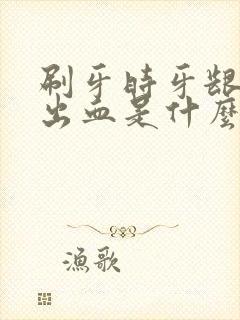 刷牙時牙齦
出血是什麼
漁歌